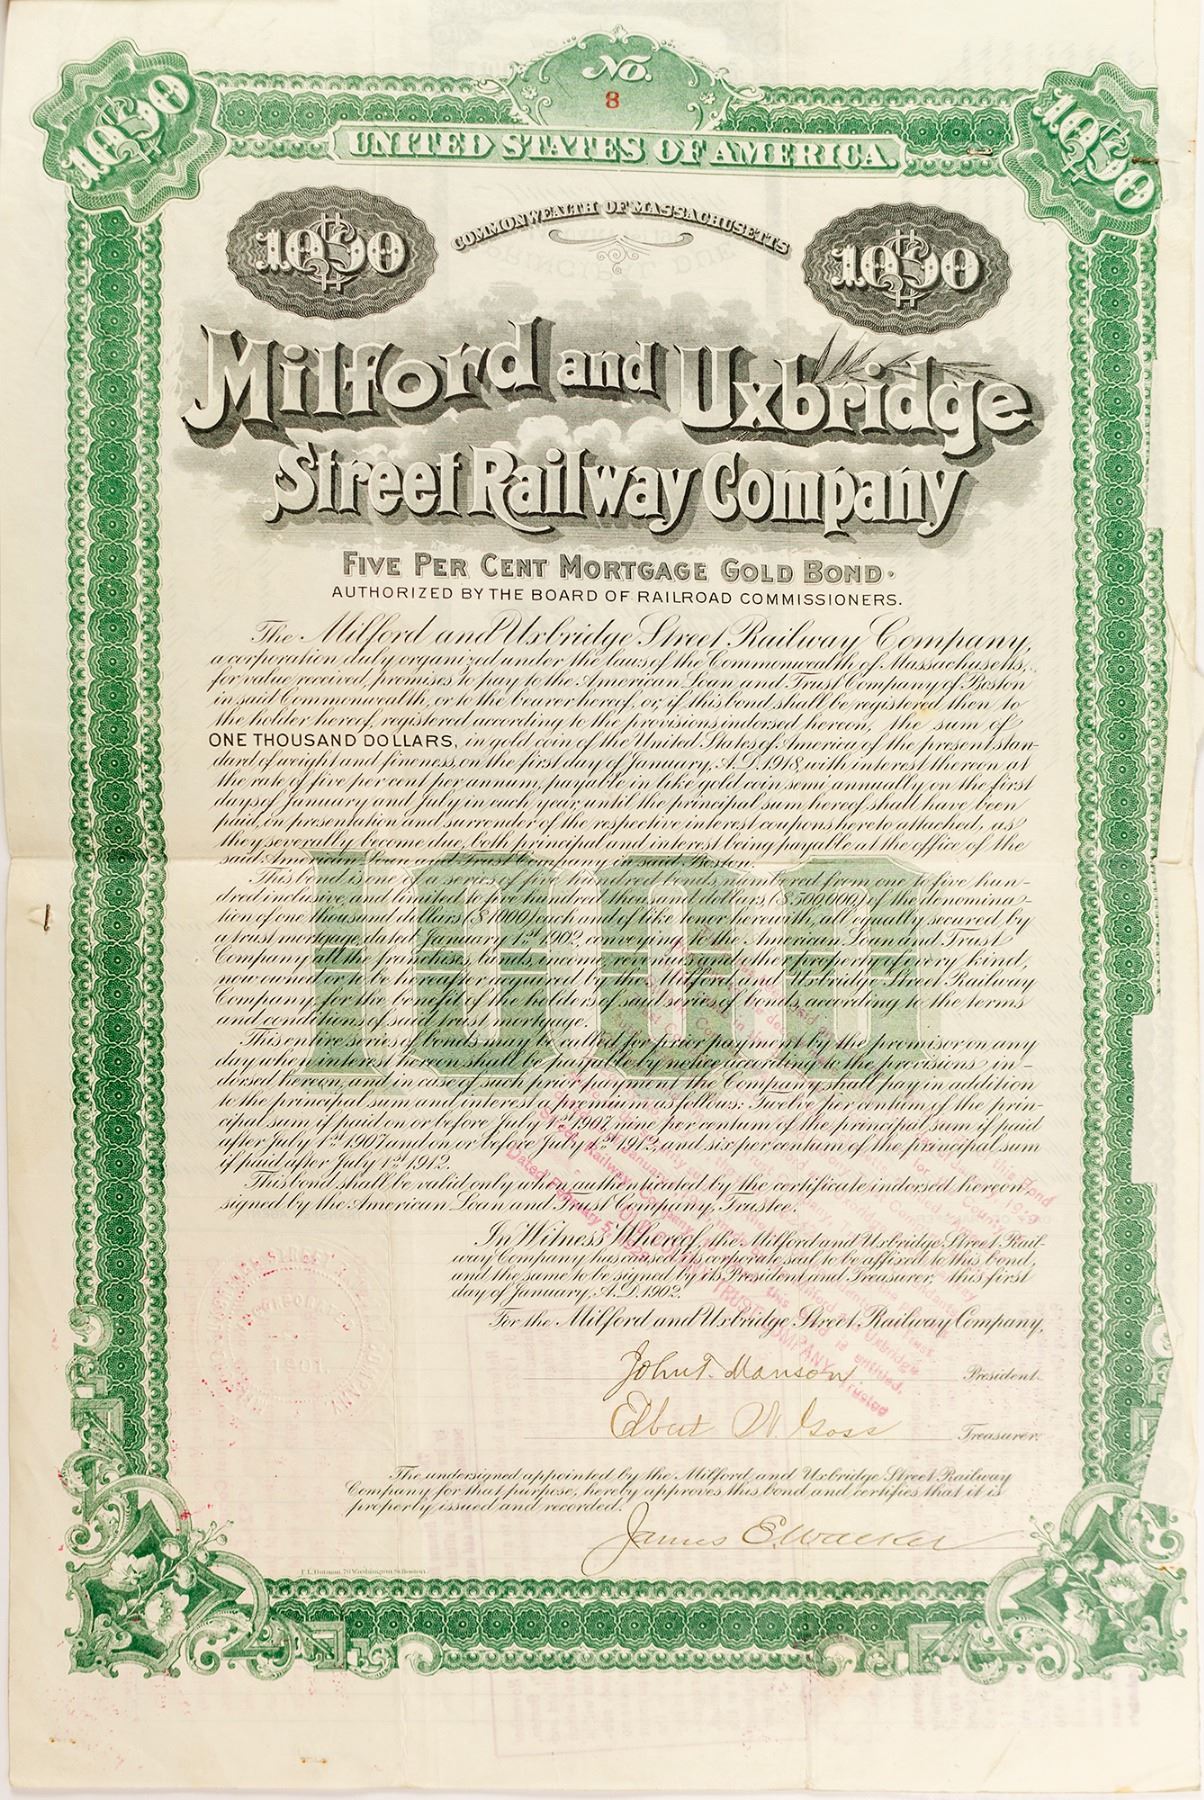 No.
8
1000
1000
UNITED STATES OF AMERICA.
COMMONWEALTH OF MASSACHUSETTS
$1000
$1000
Milford and Uxbridge
Street Railway Company
FIVE PER CENT MORTGAGE GOLD BOND.
AUTHORIZED BY THE BOARD OF RAILROAD COMMISSIONERS.
The Milford and Uxbridge Street Railway Company,
a corporation duly organized under the laws of the Commonwealth of Massachusetts,
for value received, promises to pay to the American Loan and Trust Company of Boston
in said Commonwealth, or to the bearer hereof, or, if this bond shall be registered then to
the holder hereof, registered according to the provisions indorsed hereon, the sum of
ONE THOUSAND DOLLARS, in gold coin of the United States of America of the present stan-
dard of weight and fineness, on the first day of January, A.D. 1918, with interest thereon at
the rate of five per cent per annum, payable in like gold coin semi annually on the first
days of January and July in each year, until the principal sum hereof shall have been
paid, on presentation and surrender of the respective interest coupons hereto attached, as
they severally become due, both principal and interest being payable at the office of the
said American Loan and Trust Company in said Boston.
This bond is one of a series of five hundred bonds, numbered from one to five hun-
dred inclusive, and limited to five hundred thousand dollars ($500,000) of the denomina-
tion of one thousand dollars ($1000) each and of like tenor herewith, all equally secured by
a trust mortgage, dated January 1st 1902, conveying to the American Loan and Trust
Company all the franchises, lands, income, revenues and other property of every kind,
now owned or to be hereafter acquired by the Milford and Uxbridge Street Railway
Company, for the benefit of the holders of said series of bonds, according to the terms
and conditions of said trust mortgage.
This entire series of bonds may be called for prior payment by the promisor on any
day when interest hereon shall be payable by notice according to the provisions in-
dorsed hereon, and in case of such prior payment the Company shall pay in addition
to the principal sum and interest a premium as follows: Twelve per centum of the prin-
cipal sum if paid on or before July 1st 1907, nine per centum of the principal sum if paid
after July 1st 1907 and on or before July 1st 1912, and six per centum of the principal sum
if paid after July 1st 1912.
This bond shall be valid only when authenticated by the certificate indorsed hereon
signed by the American Loan and Trust Company, Trustee.
In Witness Whereof, the Milford and Uxbridge Street Rail-
way Company has caused its corporate seal to be affixed to this bond,
and the same to be signed by its President and Treasurer, this first
day of January, A.D. 1902.
For the Milford and Uxbridge Street Railway Company,
John T. Manson President.
Elbert W. Goss Treasurer.
The undersigned appointed by the Milford and Uxbridge Street Railway
Company for that purpose, hereby approves this bond and certifies that it is
properly issued and recorded.
James E. Walker
1901
Dated February 5